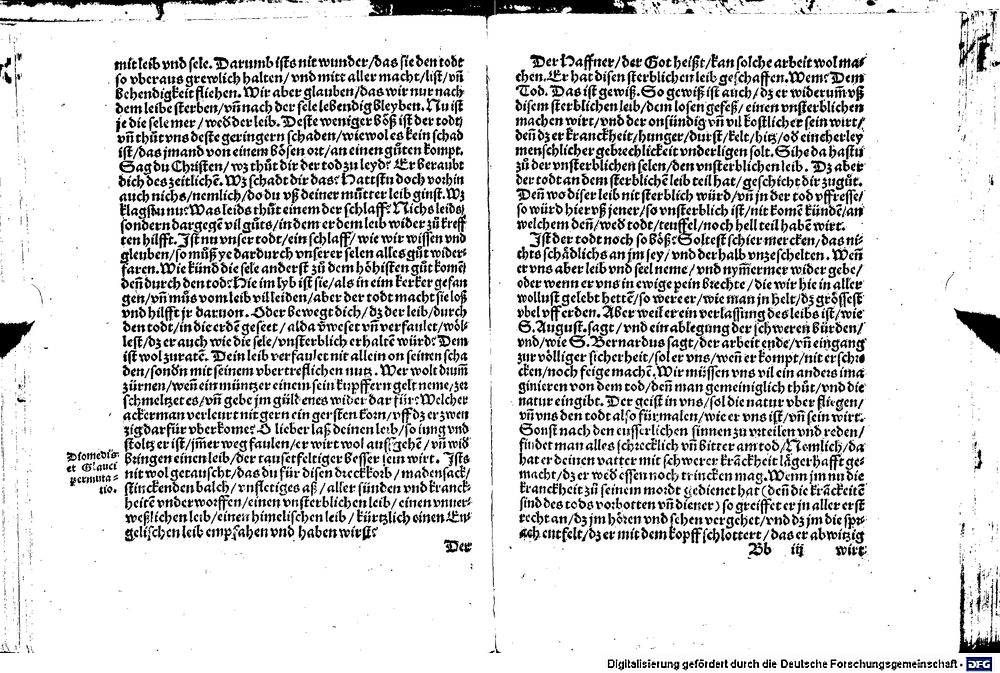 mit leib vnd sele. Darumb ists nit wunder/das sie den todt
so vberaus grewlich halten/vnd mitt aller macht/list/vñ
behendigkeit fliehen. Wir aber glauben/das wir nur nach
dem leibe sterben/vñ nach der sele lebendig bleyben. Nu ist
je die sele mer/wed̃ der leib. Deste weniger bo̊ß ist der todt
vñ thůt vns deste geringern schaden/wiewol es kein schad
ist/das jmand von einem bösen ort/an einen gůten kompt.
Sag du Christen/wz thůt dir der tod zu leyd? Er beraubt
dich des zeitlichẽ. Wz schadt dir das? Hattstu doch vorhin
auch nichs/nemlich/do du vß deiner můtter leib ginst. Wz
klagstu nu? Was leids thůt einem der schlaff? Nichs leids/
sondern dargegẽ vil gůts/in dem er dem leib wider zů kreff
ten hilfft. Ist nu vnser todt/ein schlaff/wie wir wissen vnd
gleuben/so můß ye dardurch vnserer selen alles gůt wider-
faren. Wie künd die sele anderst zů dem höhisten gůt komẽ
deñ durch den tod? Hie im lyb ist sie/als in eim kerker gefan
gen/vñ můs vom leib vil leiden/aber der todt macht sie loß
vnd hilfft jr daruon. Oder bewegt dich/dz der leib/durch
den todt/in die erdẽ geseet/alda ṽweset vñ verfaulet/wöl-
lest/dz er auch wie die sele/vnsterblich erhaltẽ würd? Dem
ist wol zuratẽ. Dein leib verfaulet nit allein on seinen scha
den/sondn̄ mit seinem vbertreflichen nutz. Wer wolt drum̃
zürnen/weñ ein müntzer einem sein kupffern gelt neme/zer
schmeltzet es/vñ gebe jm güldenes wider dar für? Welcher
ackerman verleurt nit gern ein gersten korn/vff dz er zwen
zig darfür vberkome? O lieber laß deinen leib/so iung vnd
stoltz er ist/jm̃er weg faulen/er wirt wol auffgehẽ/vñ wid̃
bringen einen leib/der tauset feltiger besser sein wirt. Ists
nit wol getauscht/das du für disen dreckkorb/madensack/
stinckenden balch/vnfletiges aß/aller sünden vnd kranck-
heitẽ vnderworffen/einen vnsterblichen leib/einen vnuer-
weßlichen leib/einen himelischen leib/kürtzlich einen En-
gelischen leib empfahen vnd haben wirst?
Diomedis
et Glauci
permuta-
tio.
Der
Der Haffner/der Got heißt/kan solche arbeit wol ma-
chen. Er hat disen sterblichen leib geschaffen. Wem? Dem
Tod. Das ist gewiß. So gewiß ist auch/dz er widerum̃ vß
disem sterblichen leib/dem losen gefeß/einen vnsterblichen
machen wirt/vnd der onsündig vñ vil kostlicher sein wirt/
deñ dz er kranckheit/hunger/durst/kelt/hitz/od̃ eincherley
menschlicher gebrechlickeit vnderligen solt. Sihe da hastu
zů der vnsterblichen selen/den vnsterblichen leib. Dz aber
der todt an dem sterblichẽ leib teil hat/geschicht dir zů gůt.
Deñ wo diser leib nit sterblich würd/vñ jn der tod vffresse/
so würd hier vß jener/so vnsterblich ist/nit komẽ kündẽ/an
welchem deñ/wed̃ todt/teuffel/noch hell teil habẽ wirt.
Ist der todt noch so böß? Soltest schier mercken/das ni-
chts schädlichs an jm sey/vnd derhalb vnzeschelten. Weñ
er vns aber leib vnd seel neme/vnd nym̃ermer wider gebe/
oder wenn er vns in ewige pein brechte/die wir hie in aller
wollust gelebt hettẽ/so were er/wie man jn helt/dz grössest
vbel vff erden. Aber weil er ein verlassung des leibs ist/wie
S. August. sagt/vnd ein ablegung der schweren bürden/
vnd/wie S. Bernardus sagt/der arbeit ende/vñ eingang
zur völliger sicherheit/sol er vns/weñ er kompt/nit erschre
cken/noch feige machẽ. Wir müssen vns vil ein anders ima
ginieren von dem tod/deñ man gemeiniglich thůt/vnd die
natur eingibt. Der geist in vns/sol die natur vber fliegen/
vñ vns den todt also fürmalen/wie er vns ist/vñ sein wirt.
Sonst nach den eusserlichen sinnen zu vrteilen vnd reden/
findet man alles schrecklich vñ bitter am tod/Nemlich/da
hat er deinen vatter mit schwerer krãckheit lãgerhafft ge-
macht/dz er wed̃ essen noch trincken mag. Wenn jm nu die
kranckheit zů seinem mordt gedienet hat (deñ die krãckeitẽ
sind des tods vorbotten vñ diener) so greiffet er jn aller erst
recht an/dz jm hören vnd sehen vergehet/vnd dz jm die spr-
ach entfelt/dz er mit dem kopff schlottert/das er abwitzig
Bb iij wirt
Digitalisierung gefördert durch die Deutsche Forschungsgemeinschaft - DFG